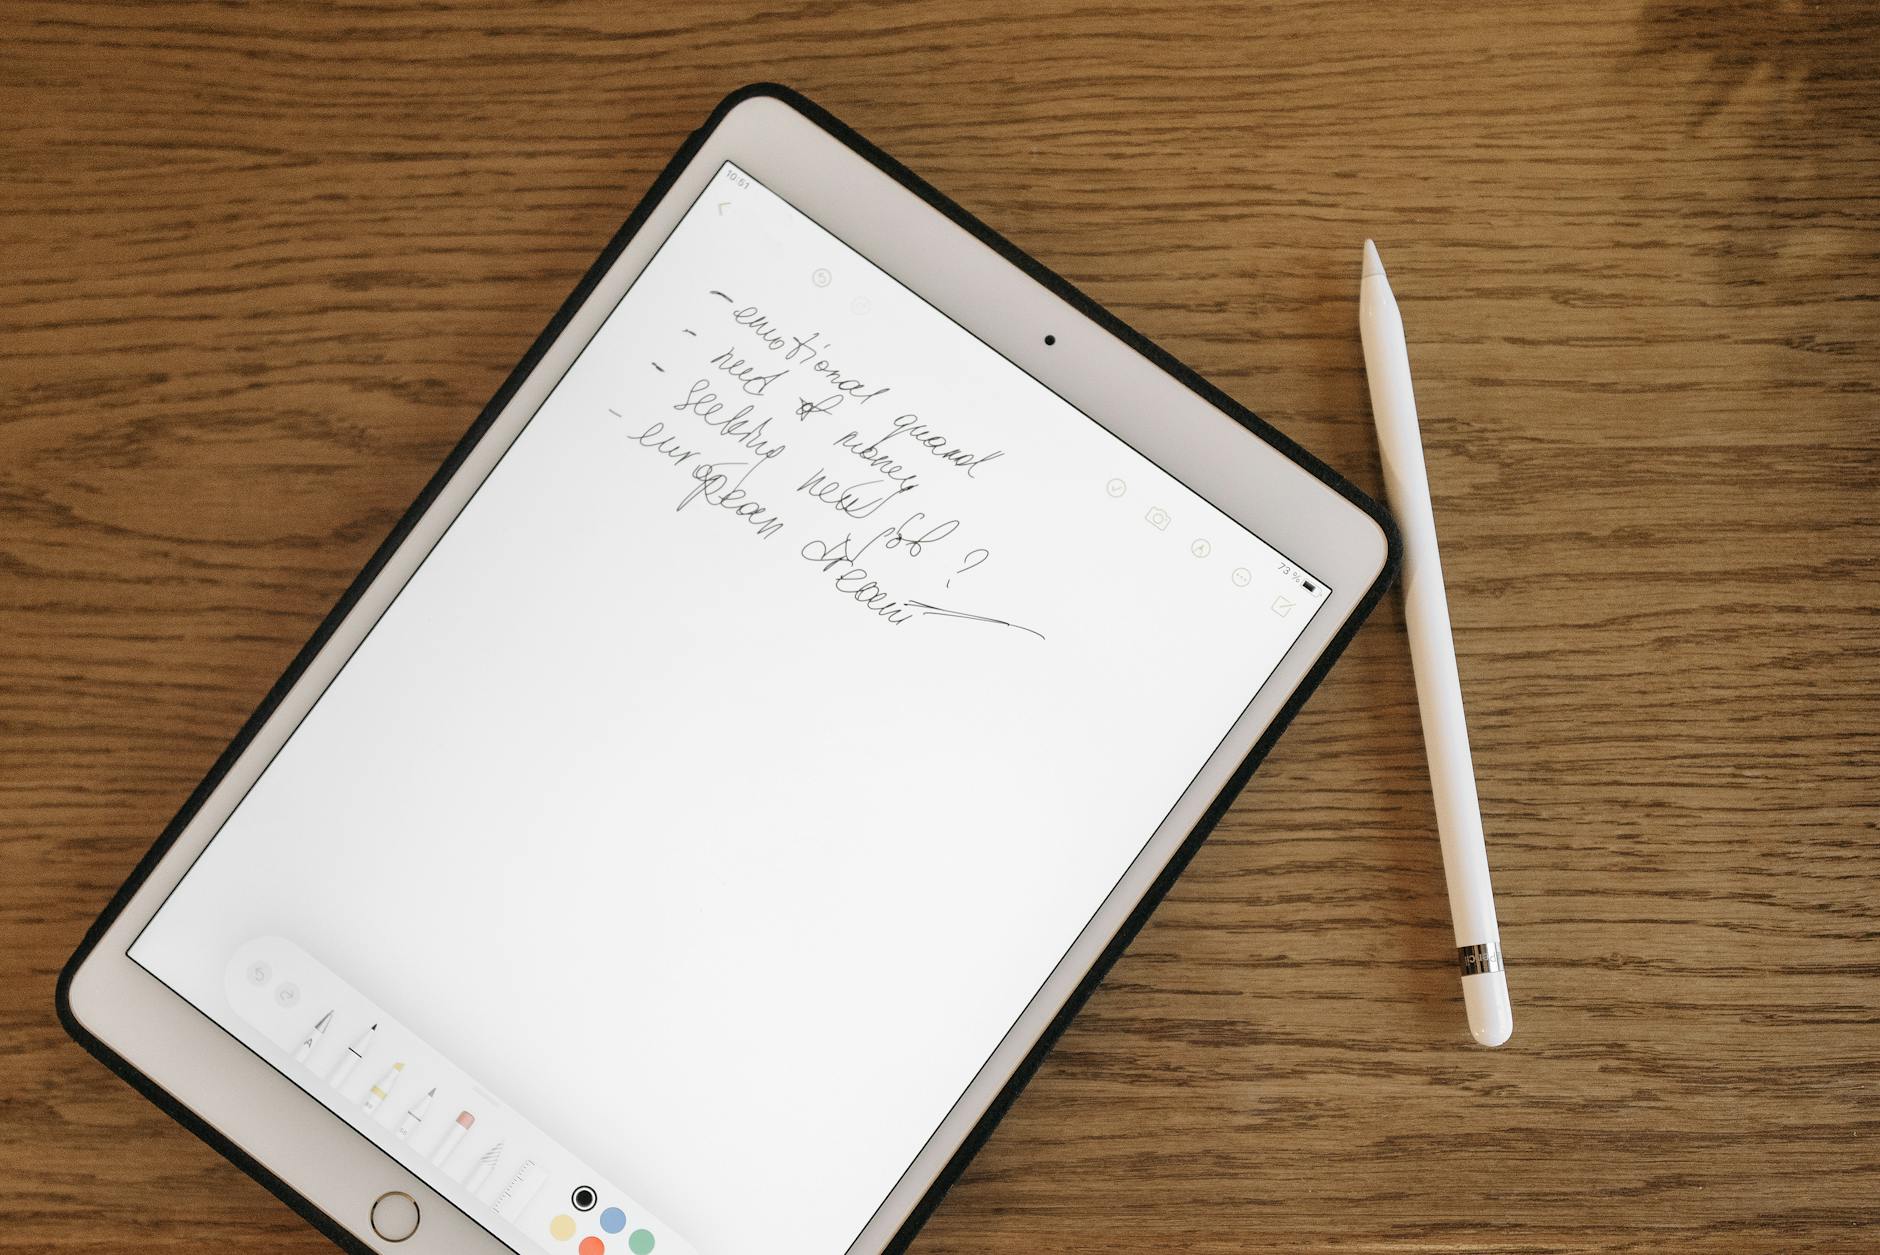 10:51
73 %
- emotional quand
- need of money
- seeking new job ?
- european dream
Pencil